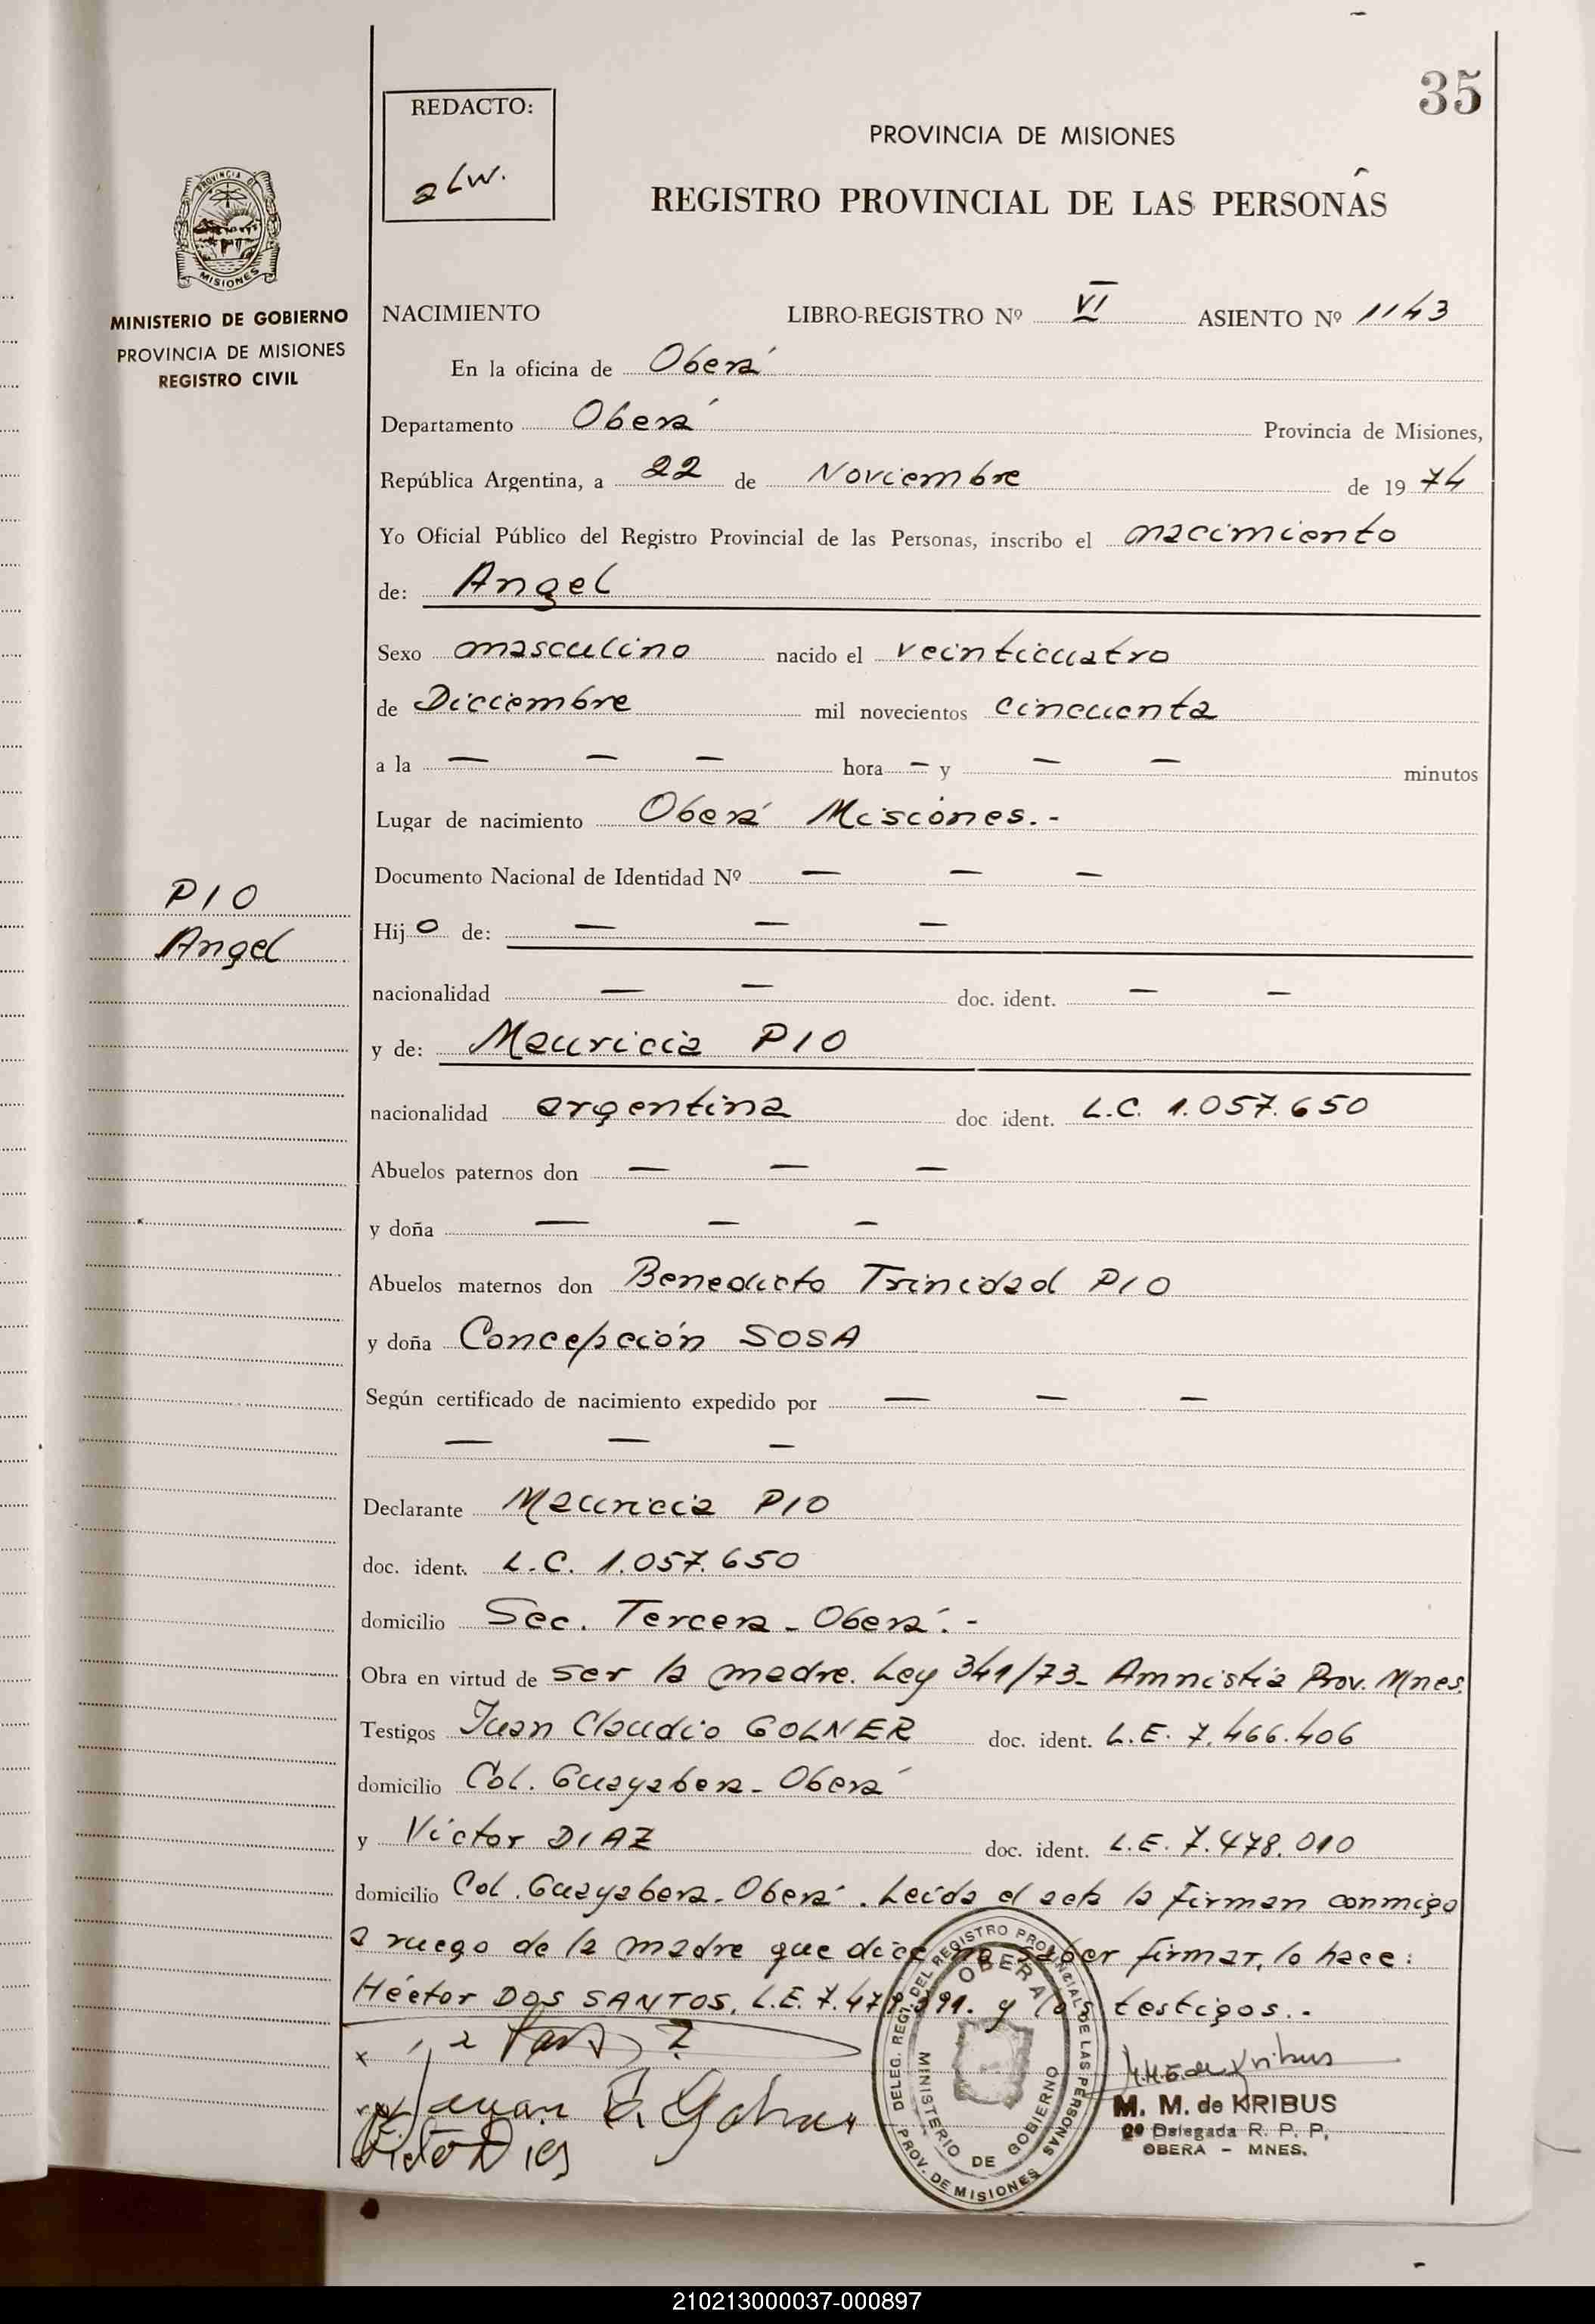 35
REDACTO:
alw.
PROVINCIA DE MISIONES
REGISTRO PROVINCIAL DE LAS PERSONAS
PROVINCIA DE
MISIONES
MINISTERIO DE GOBIERNO
PROVINCIA DE MISIONES
REGISTRO CIVIL
NACIMIENTO LIBRO-REGISTRO Nº VI ASIENTO Nº 1143
En la oficina de Oberá
Departamento Oberá Provincia de Misiones,
República Argentina, a 22 de Noviembre de 1974
Yo Oficial Público del Registro Provincial de las Personas, inscribo el nacimiento
de: Angel
Sexo masculino nacido el veinticuatro
de Diciembre mil novecientos cincuenta
a la — — — hora — y — — minutos
Lugar de nacimiento Oberá Misiones.-
Documento Nacional de Identidad Nº — — —
PIO
Angel
Hijo de: — — —
nacionalidad — — doc. ident. — —
y de: Mauricia PIO
nacionalidad argentina doc ident. L.C. 1.057.650
Abuelos paternos don — — —
y doña — — —
Abuelos maternos don Benedicto Trinidad PIO
y doña Concepción SOSA
Según certificado de nacimiento expedido por — — —
— — —
Declarante Mauricia PIO
doc. ident. L.C. 1.057.650
domicilio Sec. Tercera - Oberá.-
Obra en virtud de ser la madre. Ley 341/73- Amnistia Prov. Mnes.
Testigos Juan Claudio GOLNER doc. ident. L.E. 7.466.406
domicilio Col. Guayabera - Oberá
y Victor DIAZ doc. ident. L.E. 7.478.010
domicilio Col. Guayabera - Oberá. Leida el acta la firman conmigo
a ruego de la madre que dice no saber firmar, lo hace:
Héctor DOS SANTOS, L.E. y los testigos.-
Juan C. Golner
Victor Dias
DELEG. REGI. DEL REGISTRO PROVINCIAL DE LAS PERSONAS
OBERA
MINISTERIO DE GOBIERNO
PROV. DE MISIONES
M.M. de Kribus
M. M. de KRIBUS
2º Delegada R. P. P.
OBERA - MNES.
210213000037-000897